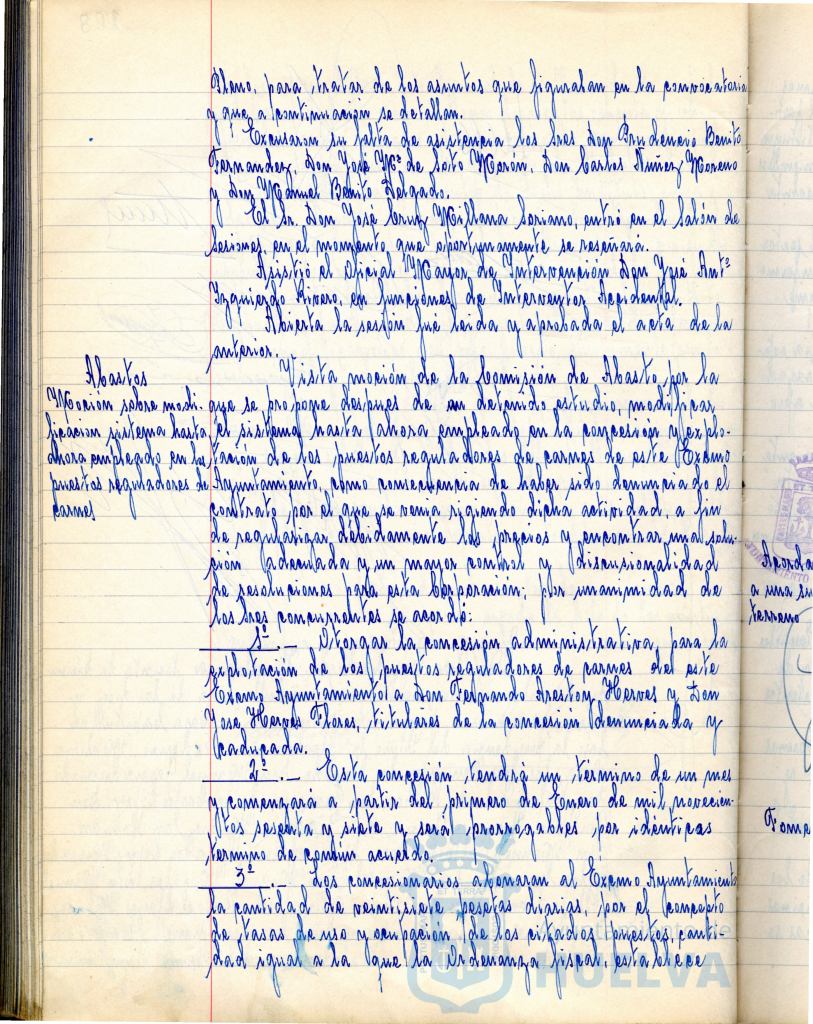 Pleno, para tratar de los asuntos que figuraban en la convocatoria
y que a continuación se detallan.
Excusaron su falta de asistencia los Sres Don Prudencio Benito
Fernandez, Don José Mª de Soto Morón, Don Carlos Nuñez Moreno
y Don Manuel Benito Delgado.
El Sr. Don José Cruz Millana Soriano, entró en el Salón de
Sesiones, en el momento que oportunamente se reseñará.
Asistió el Oficial Mayor de Intervención Don José Antº
Izquierdo Rivero, en funciones de Interventor Accidental.
Abierta la sesión fué leida y aprobada el acta de la
anterior.
Abastos
Moción sobre modi-
ficacion sistema hasta
ahora empleado en los
puestos reguladores de
carnes
Vista moción de la Comisión de Abasto, por la
que se propone despues de un detenido estudio, modificar
el sistema hasta ahora empleado en la concesión y explo-
tación de los puestos reguladores de carnes de este Excmo
Ayuntamiento, como consecuencia de haber sido denunciado el
contrato por el que se venia rigiendo dicha actividad, a fin
de regularizar debidamente los precios y encontrar una solu-
ción adecuada y un mayor control y discusionalidad
de resoluciones para esta Corporación; por unanimidad de
los Sres concurrentes se acordó:
1º.- Otorgar la concesión administrativa, para la
explotación de los puestos reguladores de carnes del este
Excmo Ayuntamiento a Don Fernando Arestoy Herves y Don
Jose Herves Flores, titulares de la concesión denunciada y
caducada.
2º.- Esta concesión tendrá un término de un mes
y comenzará a partir del primero de Enero de mil novecien-
tos sesenta y siete y será prorrogables por identicos
termino de común acuerdo.
3º.- Los concesionarios abonaran al Excmo Ayuntamiento
la cantidad de veintisiete pesetas diarias, por el concepto
de tasas de uso y ocupación de los citados puestos, canti-
dad igual a la que la Ordenanza fiscal, establece
Ayuntamiento de
HUELVA
Acorda
a una su
terreno
Fome